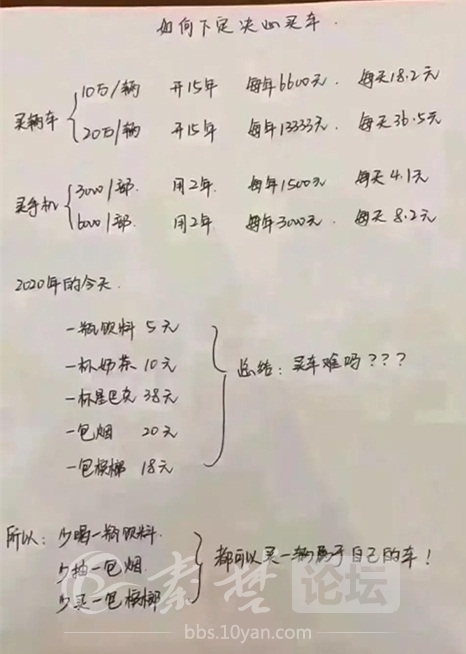 如何下定决心买车.
买辆车
10万/辆 开15年 每年6600元. 每天18.2元
20万/辆 开15年 每年13333元. 每天36.5元
买手机
3000/部. 用2年. 每年1500元 每天4.1元
6000/部. 用2年. 每年3000元. 每天8.2元
2020年的今天.
一瓶饮料 5元
一杯奶茶 10元
一杯星巴克 38元
一包烟 20元
一包槟榔 18元
总结: 买车难吗???
所以: 少喝一瓶饮料.
少抽一包烟.
少买一包槟榔
都可以买一辆属于自己的车!
秦楚论坛
bbs.10yan.com